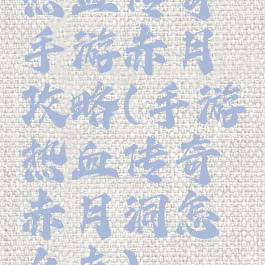 热血传奇
手游赤月
攻略(手游
热血传奇
赤月洞怎